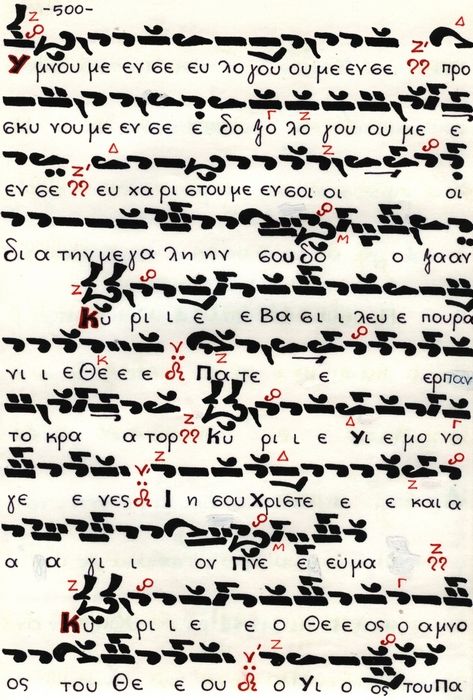 -500-
Υ μνου με εν σε ευ λο γου ου με εν σε προ
σκυ νου με εν σε ε δο ξο λο γου ου με ε
εν σε ευ χα ρι στου με εν σοι οι οι
δι α την με γα λη ην σου δο ο ξα αν
Κυ ρι ε ε Βα σι ι λευ ε που ρα
νι ι ε Θε ε ε Πα τε ε ερ παν
το κρα α τορ Κυ ρι ι ε Υι ε μο νο
γε ε ε νες Ι η σου Χρι στε ε ε και α
α α γι ι ον Πνε ε ε ευ μα
Κυ ρι ι ε ο Θε ε ος ο α μνο
ος του Θε ε ου ο Υι ο ος του Πα